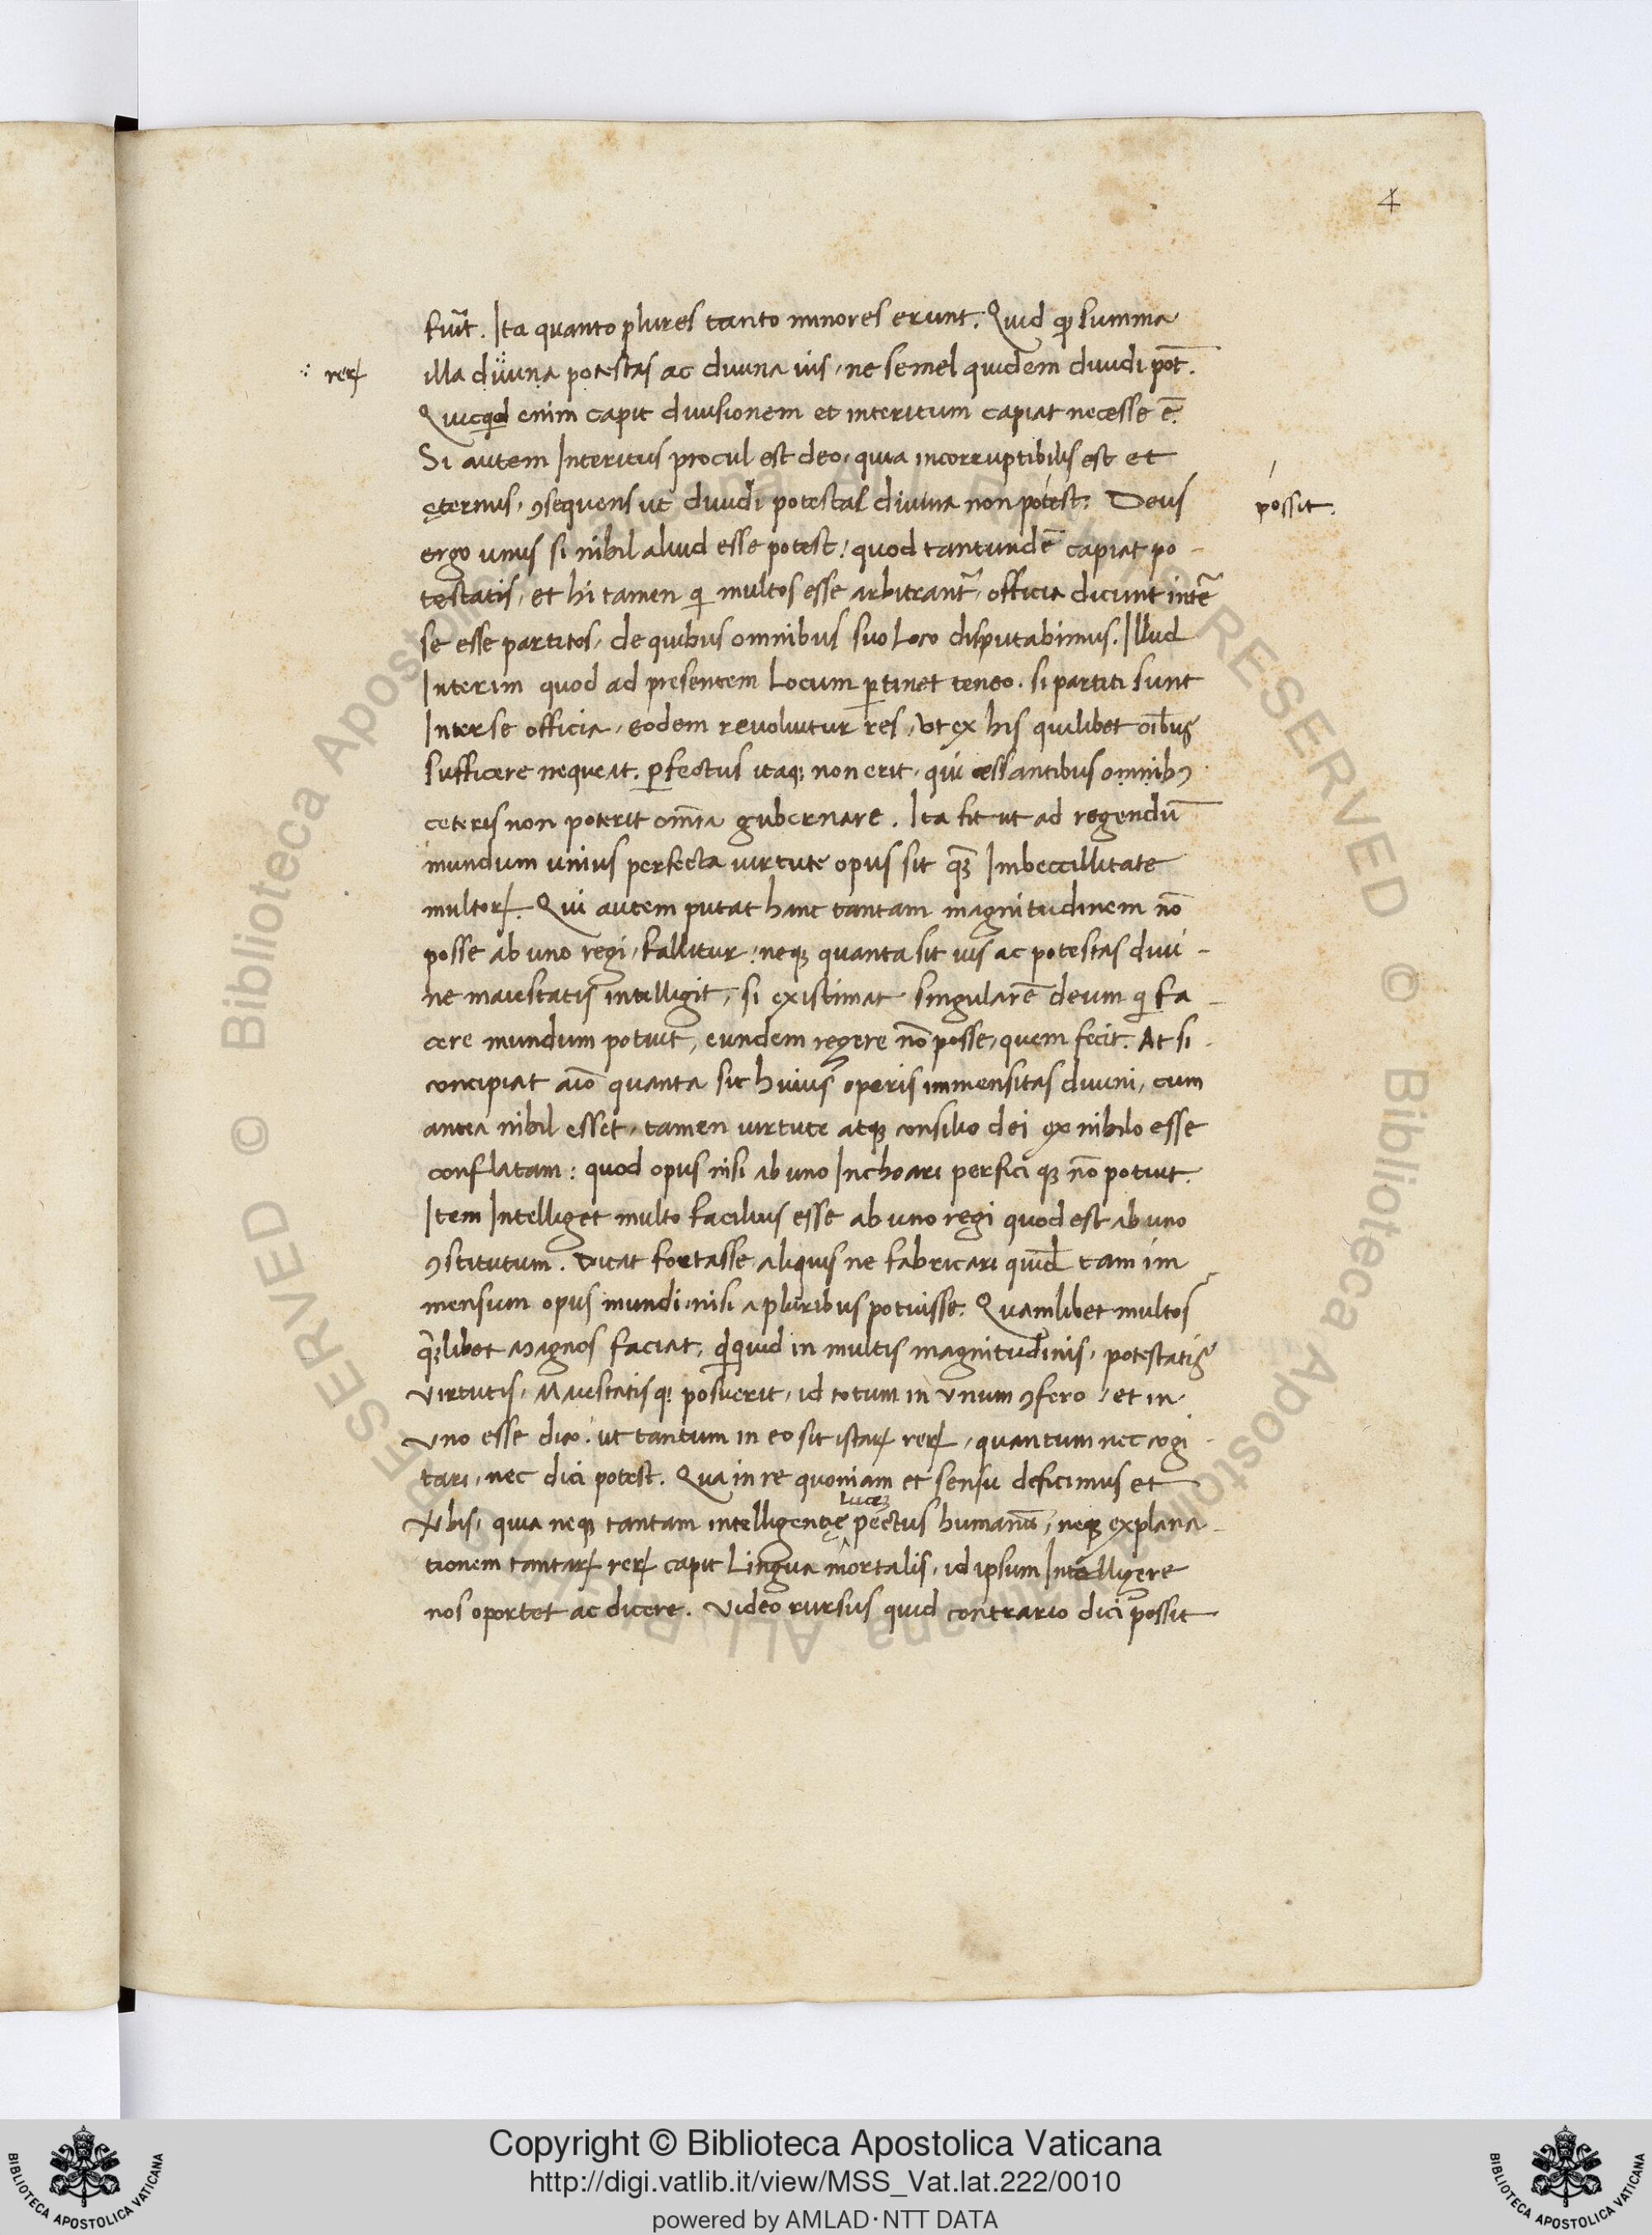 4
fiũt. Ita quanto plures tanto minores erunt. Quid qđ summa
∴ reꝝ
illa diuina potestas ac diuina uis, ne semel quidem diuidi pōt.
Quicquid enim capit diuisionem et interitum capiat necesse ē.
Si autem Interitus procul est deo, quia incorruptibilis est et
ęternus, ꝯsequens ut diuidi potestas diuina non potest. Deus
possit.
ergo unus si nihil aliud esse potest: quod tantundē capiat po-
testatis, et hi tamen qi multos esse arbitrant̃, officia dicunt inte
se esse partitos, de quibus omnibus suo Loco disputabimus. Illud
Interim quod ad presentem Locum ꝑtinet teneo. si partiti sunt
Inter se officia, eodem reuoluitur res, Ut ex his quilibet oībus
sufficere nequeat. ꝑfectus itaqꝫ non erit, qui cessantibus omnibꝯ
ceteris non poterit omīa gubernare. Ita fit ut ad regendū
mundum unius perfecta uirtute opus sit qꝫ Imbeccillitate
multoꝝ. Qui autem putat hanc tantam magnitudinem nō
posse ab uno regi, fallitur: neqꝫ quanta sit uis ac potestas diui-
ne maiestatis intelligit, si existimat singularē deum qi fa-
cere mundum potuit, eundem regere nō posse, quem fecit. At si
concipiat aīo quanta sit huius operis immensitas diuini, cum
antea nihil esset, tamen uirtute atqꝫ consilio dei ex nihilo esse
conflatam: quod opus nisi ab uno Inchoari perfici qꝫ nō potuit.
Item Intelliget multo facilius esse ab uno regi quod est ab uno
ꝯstitutum. Dicat fortasse aliquis ne fabricari quid̄ tam im-
mensum opus mundi, nisi a pluribus potuisse. Quamlibet multos
qꝫlibet Magnos faciat, qdquid in multis magnitudinis, potestatis
Virtutis, Maiestatis qꝫ posuerit, id totum in Vnum ꝯfero, et in
Vno esse dico: ut tantum in eo sit istaꝝ reꝝ, quantum nec cogi-
tari, nec dici potest. Qua in re quoniam et sensu deficimus et
Luceꝫ
Ꝟbis, quia neqꝫ tantam intelligentię pectus humanū, neqꝫ explana-
tionem tantaꝝ reꝝ capit Lingua mortalis, id ipsum Intelligere
nos oportet ac dicere. Video rursus quid contrario dici possit
Copyright © Biblioteca Apostolica Vaticana
http://digi.vatlib.it/view/MSS_Vat.lat.222/0010
powered by AMLAD·NTT DATA